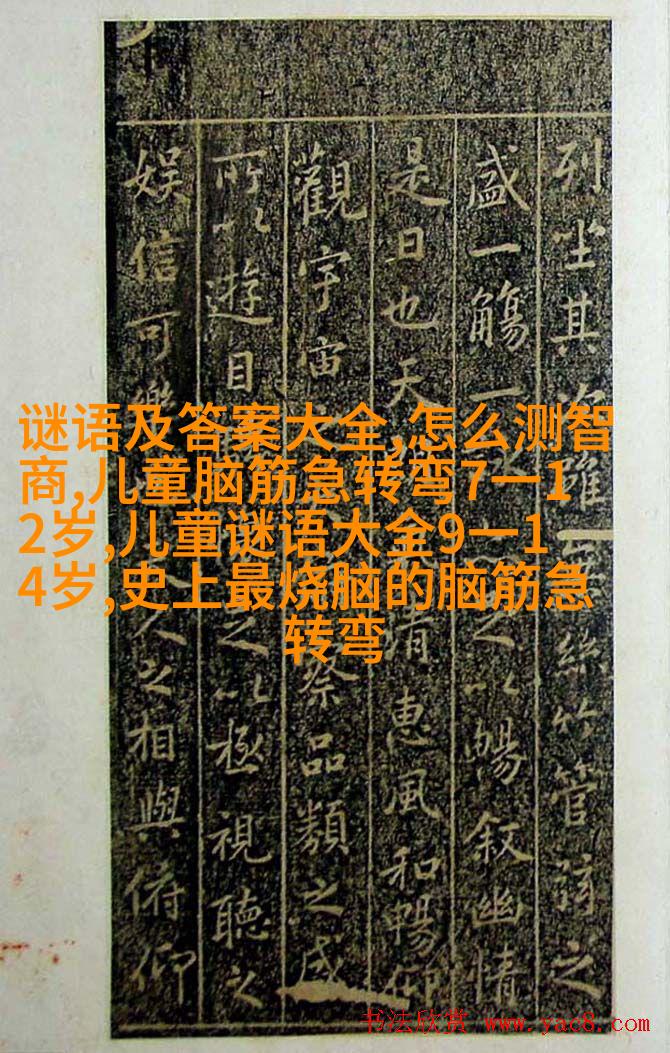 列坐其雖絲竹管弦之
盛一觴一以暢叙幽情
是日也天清惠風和暢仰
觀宇宙察品類之盛
所以遊目以極視聽之
娱信可樂人之相與俯仰
谜语及答案大全,怎么测智
商,儿童脑筋急转弯7一1
2岁,儿童谜语大全9一1
4岁,史上最烧脑的脑筋急
转弯
书法欣赏 www.yac8.com